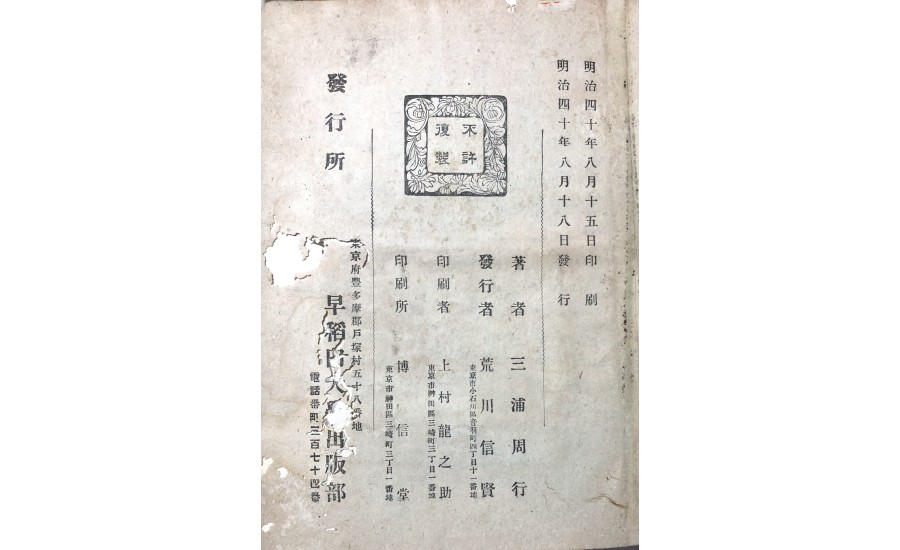 明治四十年八月十五日印刷
明治四十年八月十八日發行
不許
復製
著者 三浦周行
發行者 荒川信賢
東京市小石川區音羽町四丁目十一番地
印刷者 上村龍之助
東京市神田區三崎町三丁目一番地
印刷所 博信堂
東京市神田區三崎町三丁目一番地
東京府豐多摩郡戶塚村五十八番地
發行所 早稻田大學出版部
電話番町三百七十四番